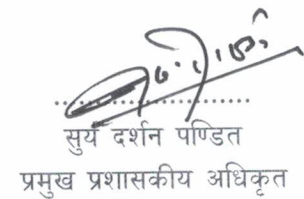 सुर्य दर्शन पण्डित
प्रमुख प्रशासकीय अधिकृत